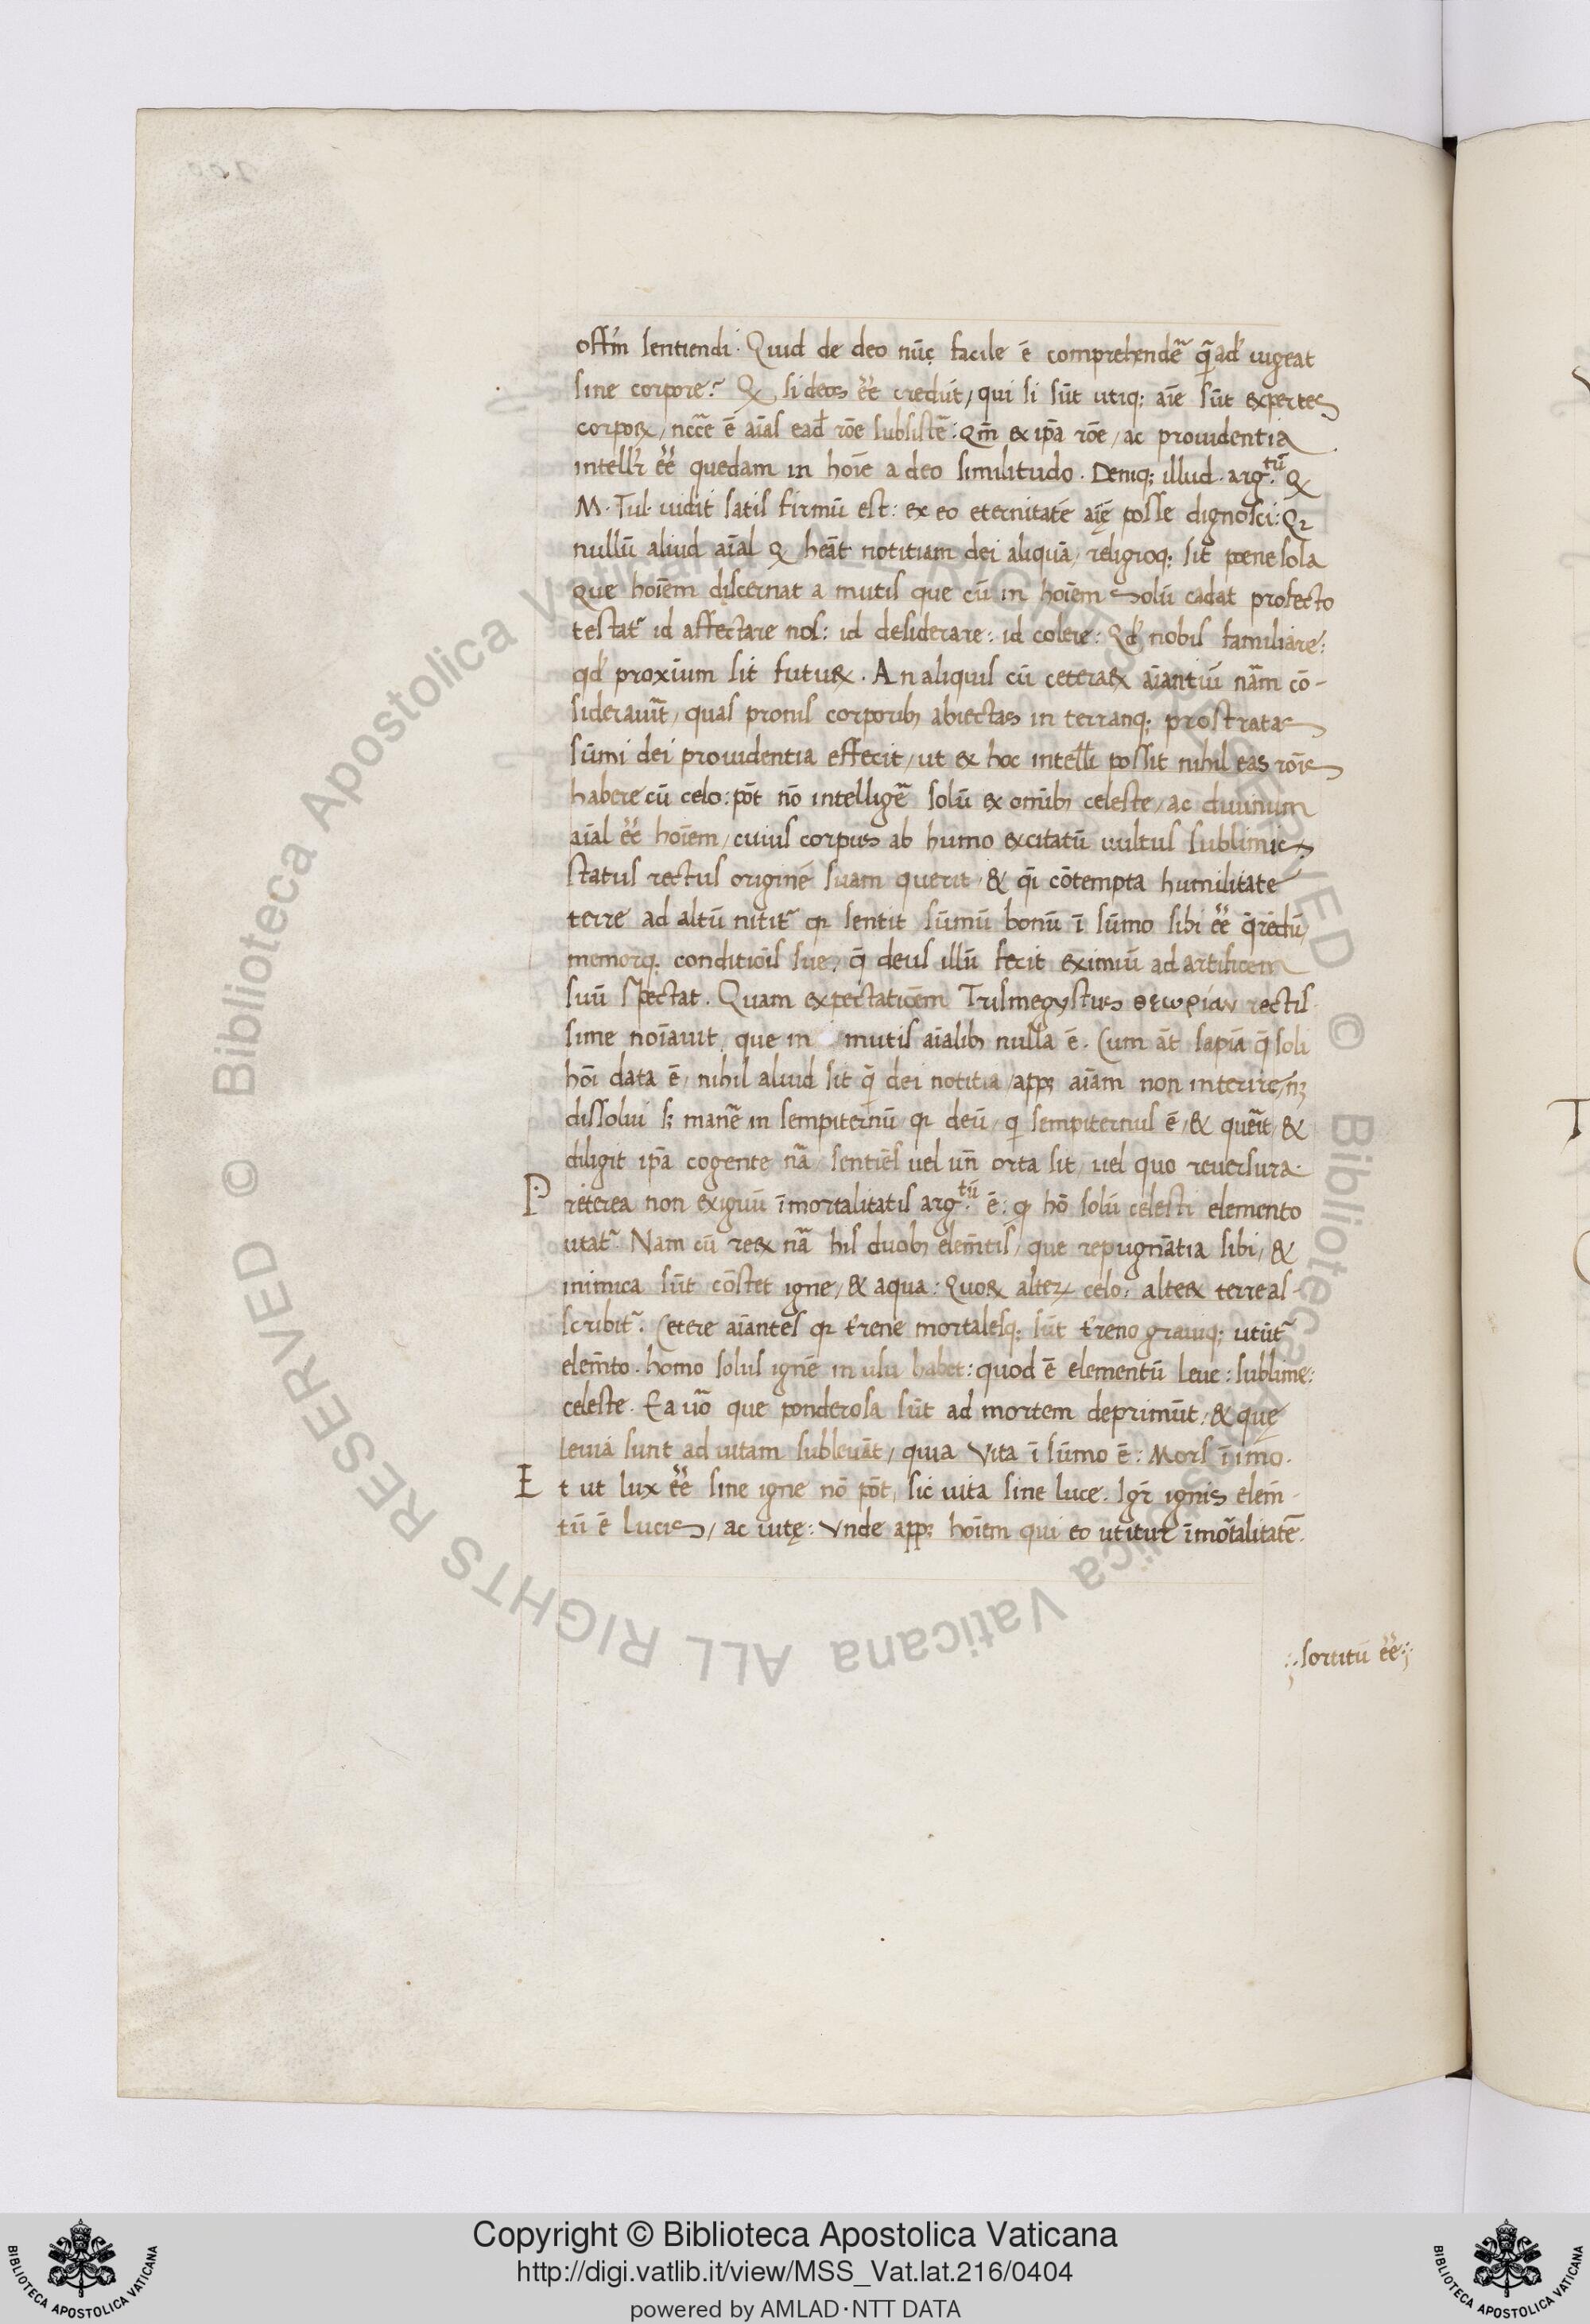 offm̄ sentiendi. Quid de deo nūc facile ē comprehendē q̄ad' uigeat
sine corpore? Q si deos eē credūt, qui si sūt utiq; aīe sūt expertes
corpoꝝ, nccē ē aīas ead' rōe subsistē: qm̄ ex ip̄a rōe, ac prouidentia
intellr̄ eē quedam in hoīe a deo similitudo. Deniq; illud arg.tū Q
M. Tul. uidit satis firmū est: ex eo eternitatē aīę posse dignosci: Qꝛ
nullū aliud aīal q heāt notitiam dei aliquā, religioq; sit pene sola
que hoīem discernat a mutis que cū in hoīem solū cadat profecto
testat' id affectare nos: id desiderare: id colere: Qd' nobis familiare:
qd' proxīum sit futuꝝ. An aliquis cū ceteraꝝ aīantiū nām cō-
siderauīt, quas pronis corporibꝫ abiectas in terramq; prostratas
sūmi dei prouidentia effecit, ut ex hoc intelli possit nihil eas rōis
habere cū celo: pōt nō intelligē solū ex omībꝫ celeste, ac diuinum
aīal eē hoīem, cuius corpus ab humo excitatū uultus sublimis
status rectus originē suam querit, & qi cōtempta humilitate
terre ad altū nitit' qꝛ sentit sūmū bonū ī sūmo sibi eē q̄rēdū,
memorq; conditiōis sue, q̄ deus illū fecit eximiū ad artificem
suū spectat. Quam expectatiōem Trismegystus θεωρίαν rectis
sime noīauit, que in mutis aīalibꝫ nulla ē. Cum āt sapīa q̄ soli
hōi data ē, nihil aliud sit q̄ dei notitia, appꝫ aīam non interire, nꝫ
dissolui sꝫ manē in sempiternū qꝛ deū, q sempiternus ē, & querīt, &
diligit ip̄a cogente nā, sentiēs uel un̄ orta sit, uel quo reuersura.
Preterea non exiguū īmortalitatis arg.tū ē: q hō solū celesti elemento
utat'. Nam cū reꝝ nā his duobꝫ elem̄tis, que repugnātia sibi, &
inimica sūt cōstet igne, & aqua: Quoꝝ alteꝝ celo, alteꝝ terre as-
scribit'. Cetere aīantes qꝛ t'rene mortalesq; sūt t'reno grauiq; utūt'
elem̄to. homo solus ignē in usu habet: quod ē elementū leue: sublime:
celeste. Ea uo que ponderosa sūt ad mortem deprimūt, & quę
leuia sunt ad uitam subleuāt, quia Vita ī sūmo ē: Mors īimo.
Et ut lux eē sine igne nō pōt, sic uita sine luce. Igr̄ ignis elem̄-
tū ē lucis, ac uitę: Vnde appꝫ hoīem qui eo utitur īmortalitatē.
sortitū eē: